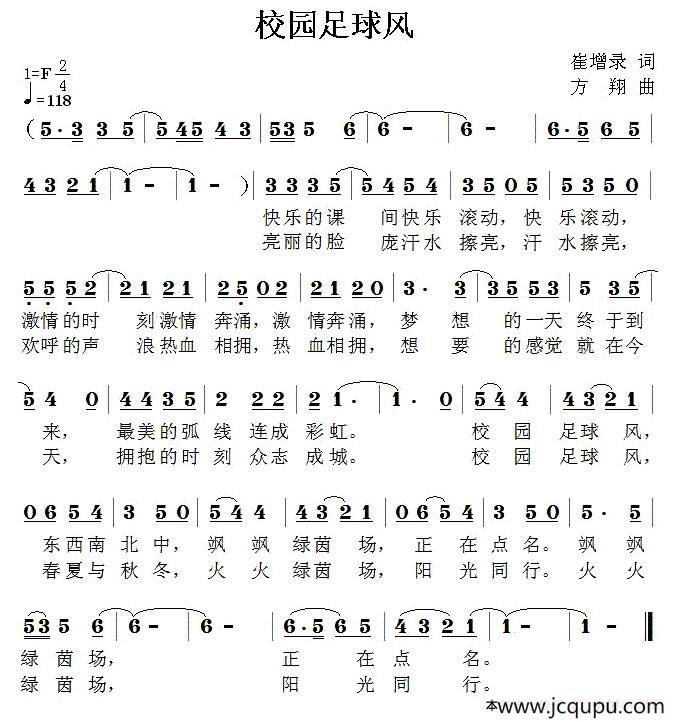 校园足球风
1=F 2/4
崔增录 词
♩=118
方 翔 曲
( 5· 3 3 5 | 5 45 4 3 | 53 5 6 | 6 - | 6 - | 6· 5 6 5 |
4 3 2 1 | 1 - | 1 - ) | 3 3 3 5 | 5 4 5 4 | 3 5 0 5 | 5 3 5 0 |
快乐的课 间快乐 滚动，快 乐滚动，
亮丽的脸 庞汗水 擦亮，汗 水擦亮，
5 5 5 2 | 2 1 2 1 | 2 5 0 2 | 2 1 2 0 | 3· 3 | 3 5 5 3 | 5 3 5 |
激情的时 刻激情 奔涌，激 情奔涌，梦 想 的一天 终于到
欢呼的声 浪热血 相拥，热 血相拥，想 要 的感觉 就在今
5 4 0 | 4 4 3 5 | 2 2 2 | 2 1· | 1· 0 | 5 4 4 | 4 3 2 1 |
来， 最美的弧 线 连成 彩虹。 校 园 足球 风，
天， 拥抱的时 刻 众志 成城。 校 园 足球 风，
0 6 5 4 | 3 5 0 | 5 4 4 | 4 3 2 1 | 0 6 5 4 | 3 5 0 | 5· 5 |
东西南 北中， 飒 飒 绿茵 场， 正 在点 名。 飒 飒
春夏与 秋冬， 火 火 绿茵 场， 阳 光同 行。 火 火
53 5 6 | 6 - | 6 - | 6· 5 6 5 | 4 3 2 1 | 1 - | 1 - ‖
绿 茵 场， 正 在 点 名。
绿 茵 场， 阳 光 同 行。
本www.jcqupu.com